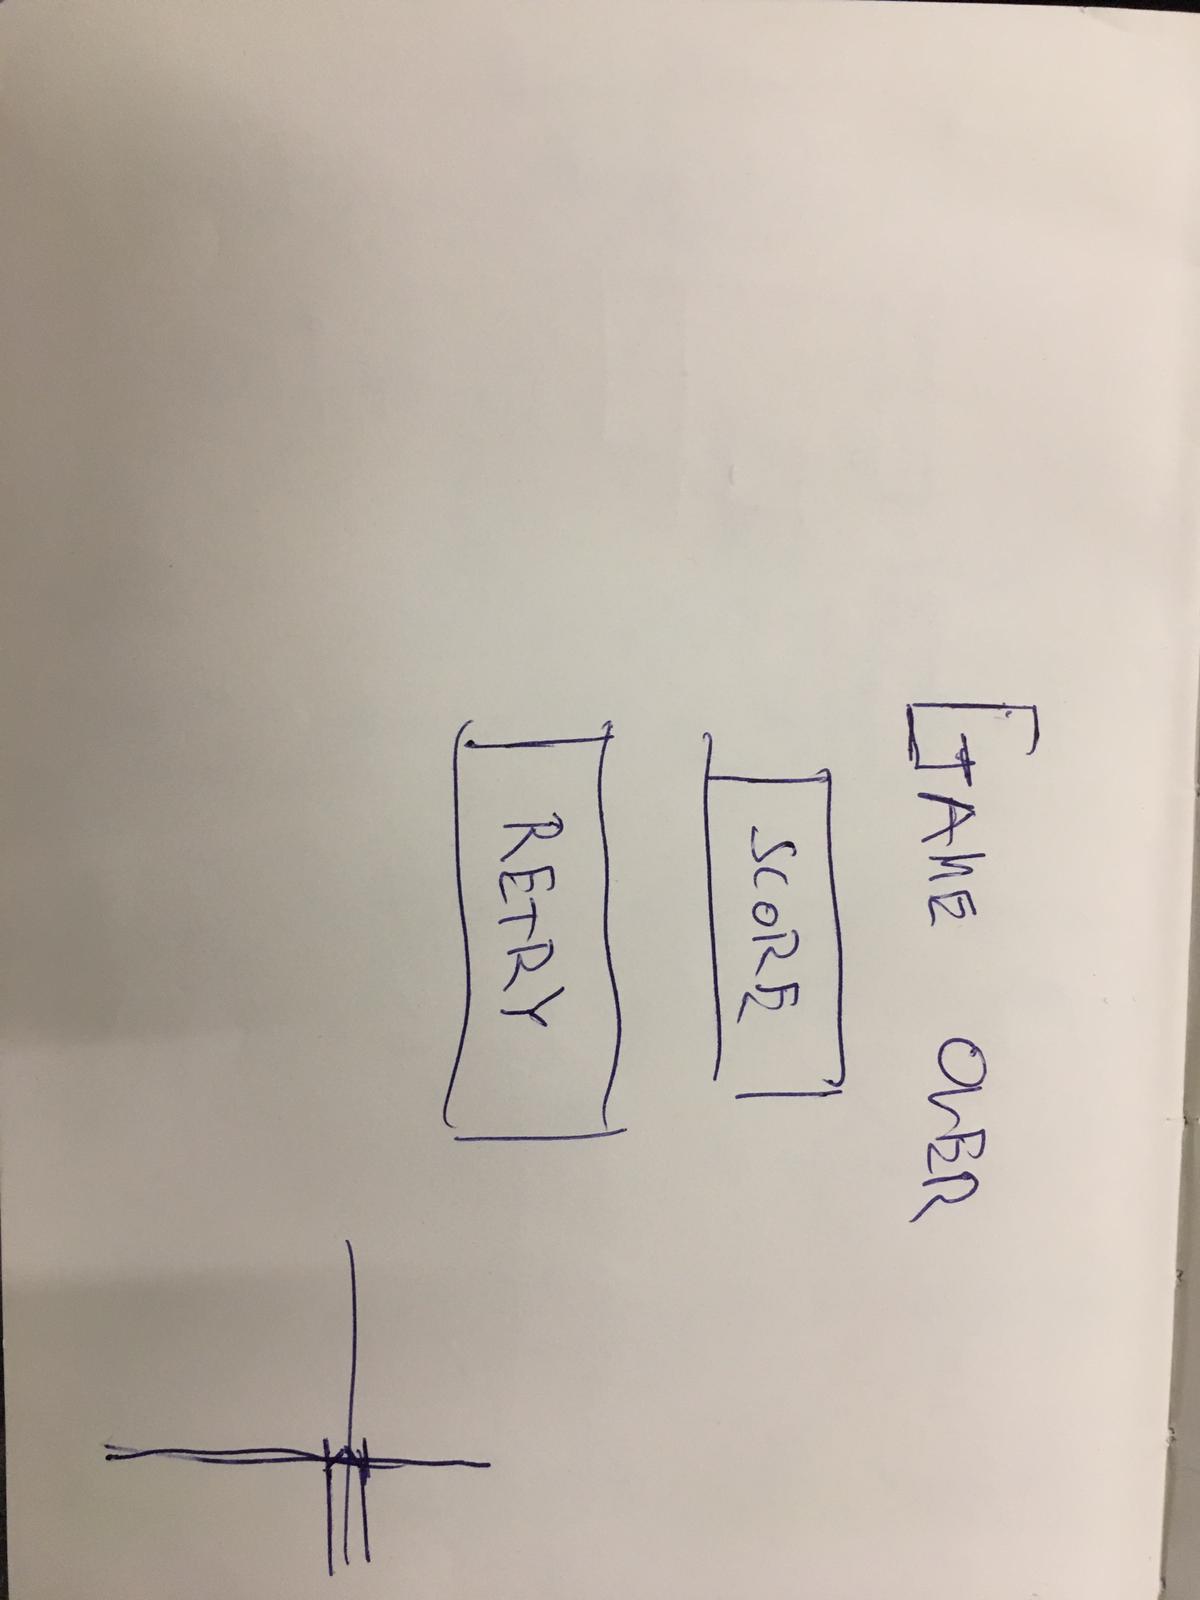 GAME OVER
SCORE
RETRY